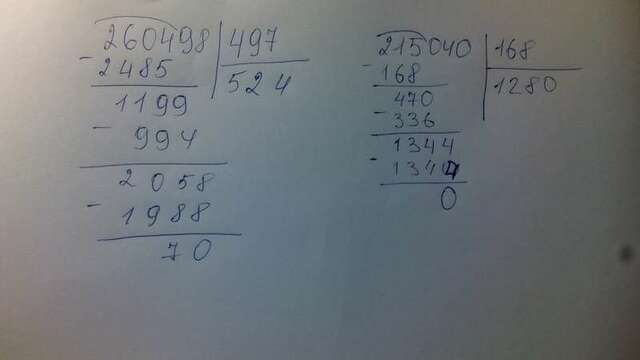 260498 | 497
- 2485 | 524
1199
- 994
2058
- 1988
70
215040 | 168
- 168 | 1280
470
- 336
1344
- 1344
0